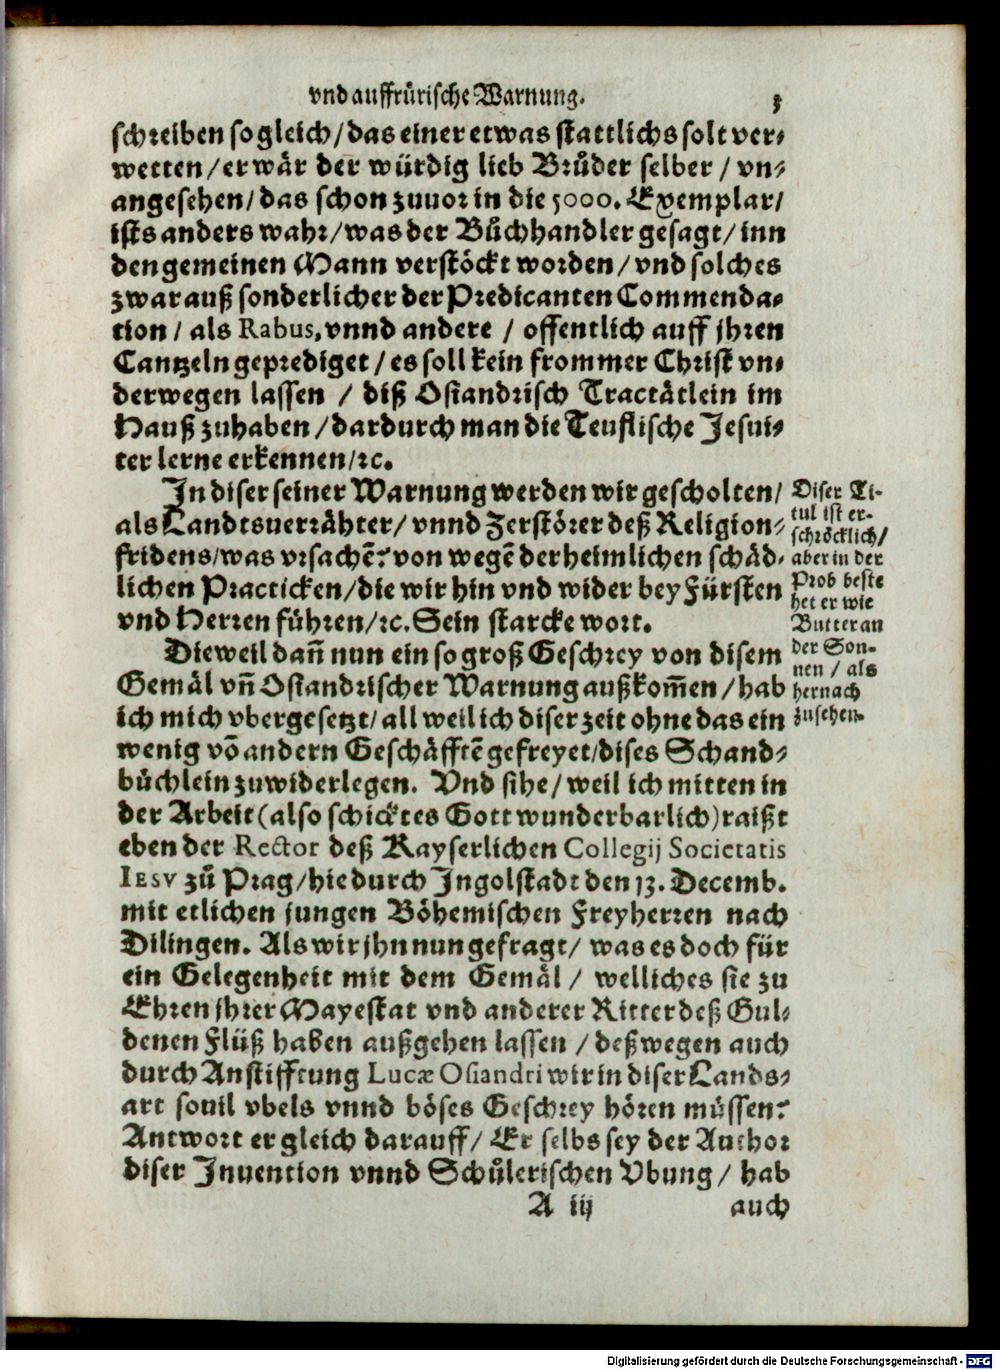 vnd auffrürische Warnung. 3
schreiben so gleich/das einer etwas stattlichs solt ver-
wetten/er wär der würdig lieb Brůder selber / vn-
angesehen/das schon zuuor in die 5000. Exemplar/
ists anders wahr/was der Bůchhandler gesagt/inn
den gemeinen Mann verstöckt worden/vnd solches
zwar auß sonderlicher der Predicanten Commenda-
tion / als Rabus, vnnd andere / offentlich auff jhren
Cantzeln geprediget / es soll kein frommer Christ vn-
derwegen lassen / diß Osiandrisch Tractätlein im
Hauß zuhaben/dardurch man die Teuflische Jesui-
ter lerne erkennen/ꝛc.
In diser seiner Warnung werden wir gescholten/
als Landtsuerrähter/vnnd Zerstörer deß Religion-
fridens/was vrsachē? von wegē der heimlichen schäd-
lichen Practicken/die wir hin vnd wider bey Fürsten
vnd Herren führen/ꝛc. Sein starcke wort.
Diser Ti-
tul ist er-
schröcklich/
aber in der
Prob beste
het er wie
Butter an
der Son-
nen / als
hernach
zusehen.
Dieweil dañ nun ein so groß Geschrey von disem
Gemäl vñ Osiandrischer Warnung außkom̃en/hab
ich mich vbergesetzt/all weil ich diser zeit ohne das ein
wenig võ andern Geschäfftē gefreyet/dises Schand-
büchlein zuwiderlegen. Vnd sihe/weil ich mitten in
der Arbeit (also schickt es Gott wunderbarlich) raißt
eben der Rector deß Kayserlichen Collegij Societatis
IESV zů Prag/hie durch Ingolstadt den 13. Decemb.
mit etlichen jungen Böhemischen Freyherren nach
Dilingen. Als wir jhn nun gefragt/ was es doch für
ein Gelegenheit mit dem Gemäl / welliches sie zu
Ehren jhrer Mayestat vnd anderer Ritter deß Gul-
denen Flüß haben außgehen lassen / deßwegen auch
durch Anstifftung Lucæ Osiandri wir in diser Lands-
art souil vbels vnnd böses Geschrey hören müssen?
Antwort er gleich darauff/ Er selbs sey der Author
diser Inuention vnnd Schůlerischen Vbung / hab
A iij auch
Digitalisierung gefördert durch die Deutsche Forschungsgemeinschaft - DFG